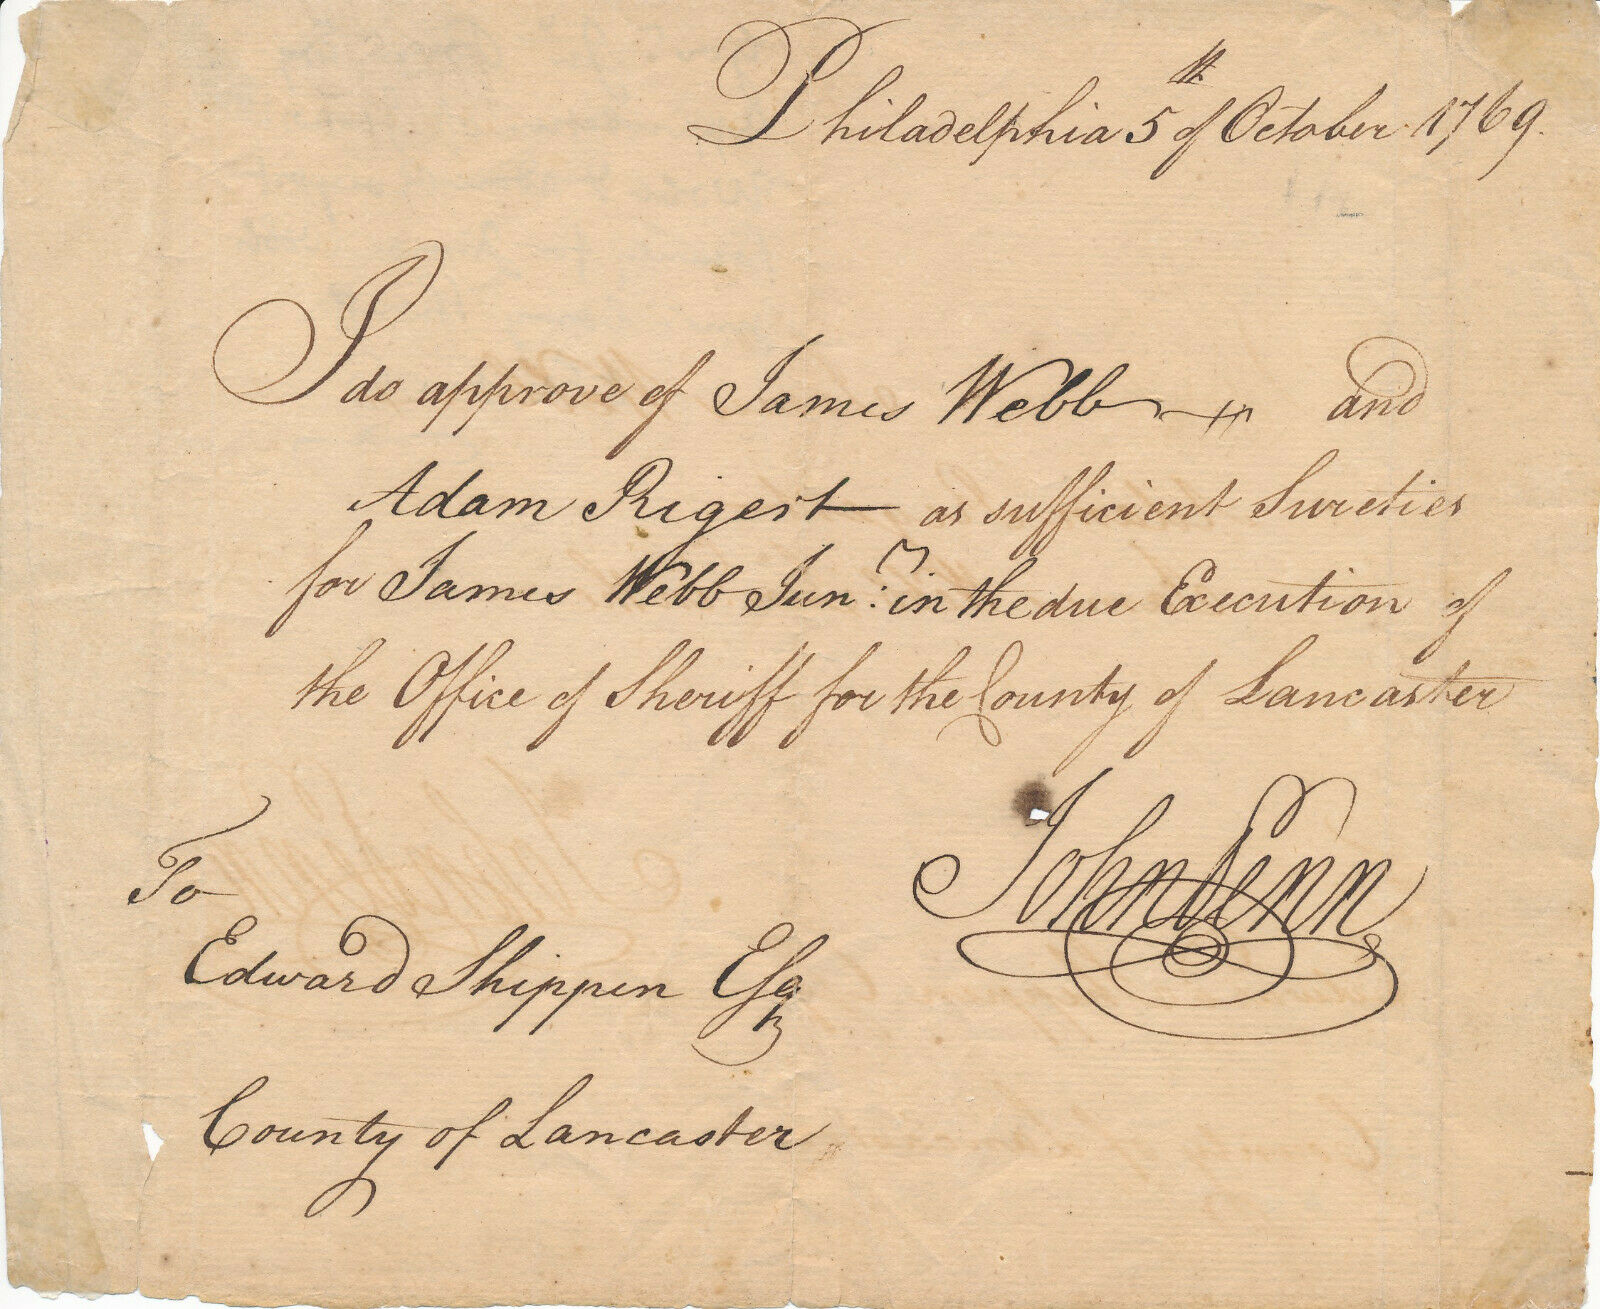 Philadelphia 5th of October 1769.
I do approve of James Webb and
Adam Rigert as sufficient Sureties
for James Webb Junr: in the due Execution of
the Office of Sheriff for the County of Lancaster
John Penn
To
Edward Shippen Esqr
County of Lancaster